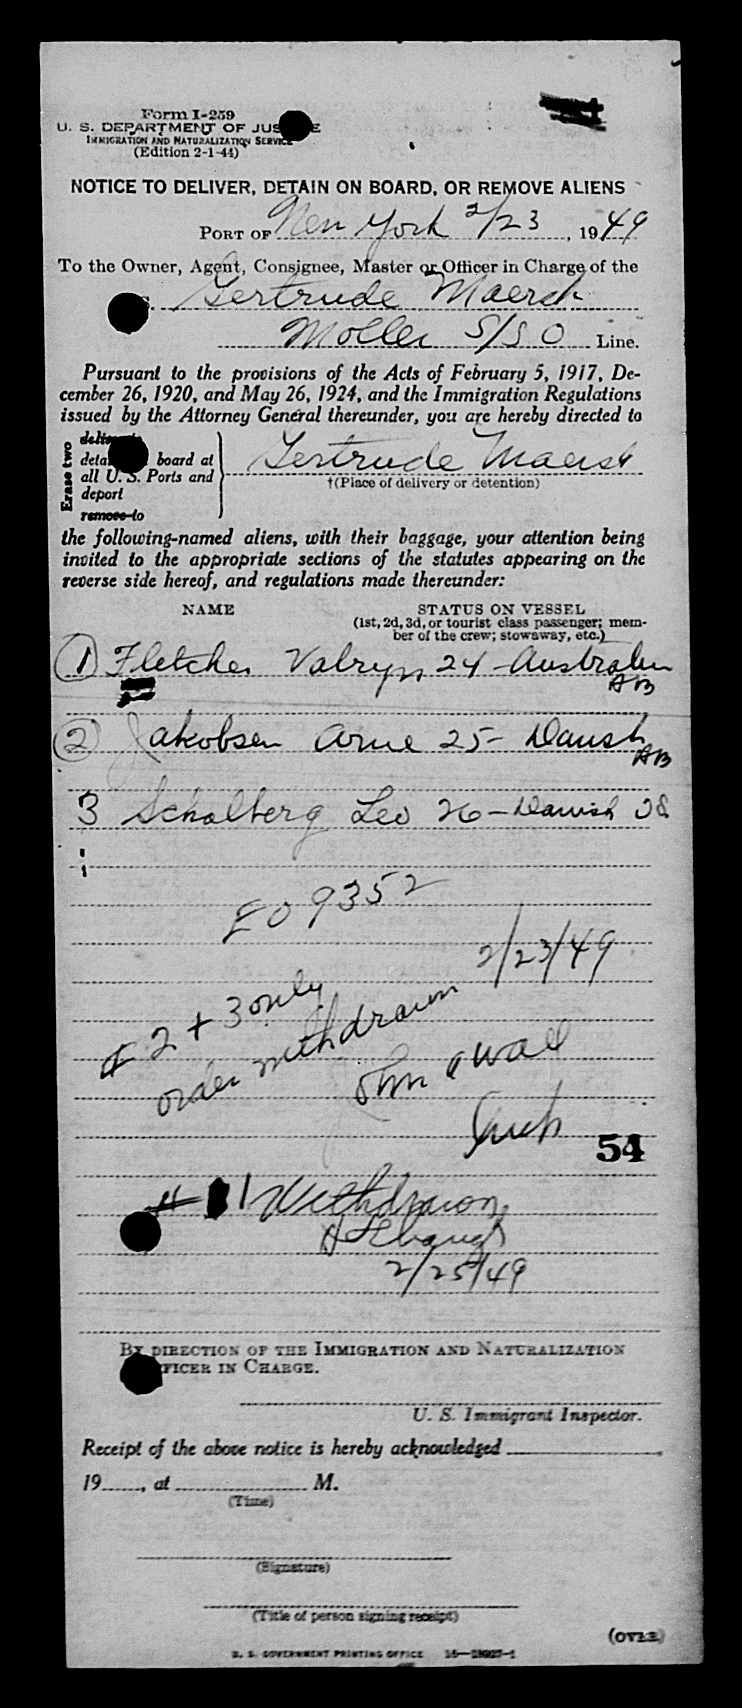 Form I-259
U. S. DEPARTMENT OF JUSTICE
IMMIGRATION AND NATURALIZATION SERVICE
(Edition 2-1-44)
NOTICE TO DELIVER, DETAIN ON BOARD, OR REMOVE ALIENS
PORT OF New York 2/23, 1949
To the Owner, Agent, Consignee, Master or Officer in Charge of the
S. Gertrude Maersk
Moller S/S O Line.
Pursuant to the provisions of the Acts of February 5, 1917, De-
cember 26, 1920, and May 26, 1924, and the Immigration Regulations
issued by the Attorney General thereunder, you are hereby directed to
Erase two
deliver to
detain on board at
all U. S. Ports and
deport
remove to
Gertrude Maersk
†(Place of delivery or detention)
the following-named aliens, with their baggage, your attention being
invited to the appropriate sections of the statutes appearing on the
reverse side hereof, and regulations made thereunder:
NAME STATUS ON VESSEL
(1st, 2d, 3d, or tourist class passenger; mem-
ber of the crew; stowaway, etc.)
1 Fletcher 24 - Australian
AB
2 Jakobsen Arne 25 - Danish
AB
3 Schalberg Leo 26 - Danish OS
E09352
# 2 + 3 only
order withdrawn 2/23/49
54
# 1 Withdrawn
2/25/49
BY DIRECTION OF THE IMMIGRATION AND NATURALIZATION
OFFICER IN CHARGE.
U. S. Immigrant Inspector.
Receipt of the above notice is hereby acknowledged
19, at M.
(Time)
(Signature)
(Title of person signing receipt)
(OVER)
U. S. GOVERNMENT PRINTING OFFICE 16—18927-1